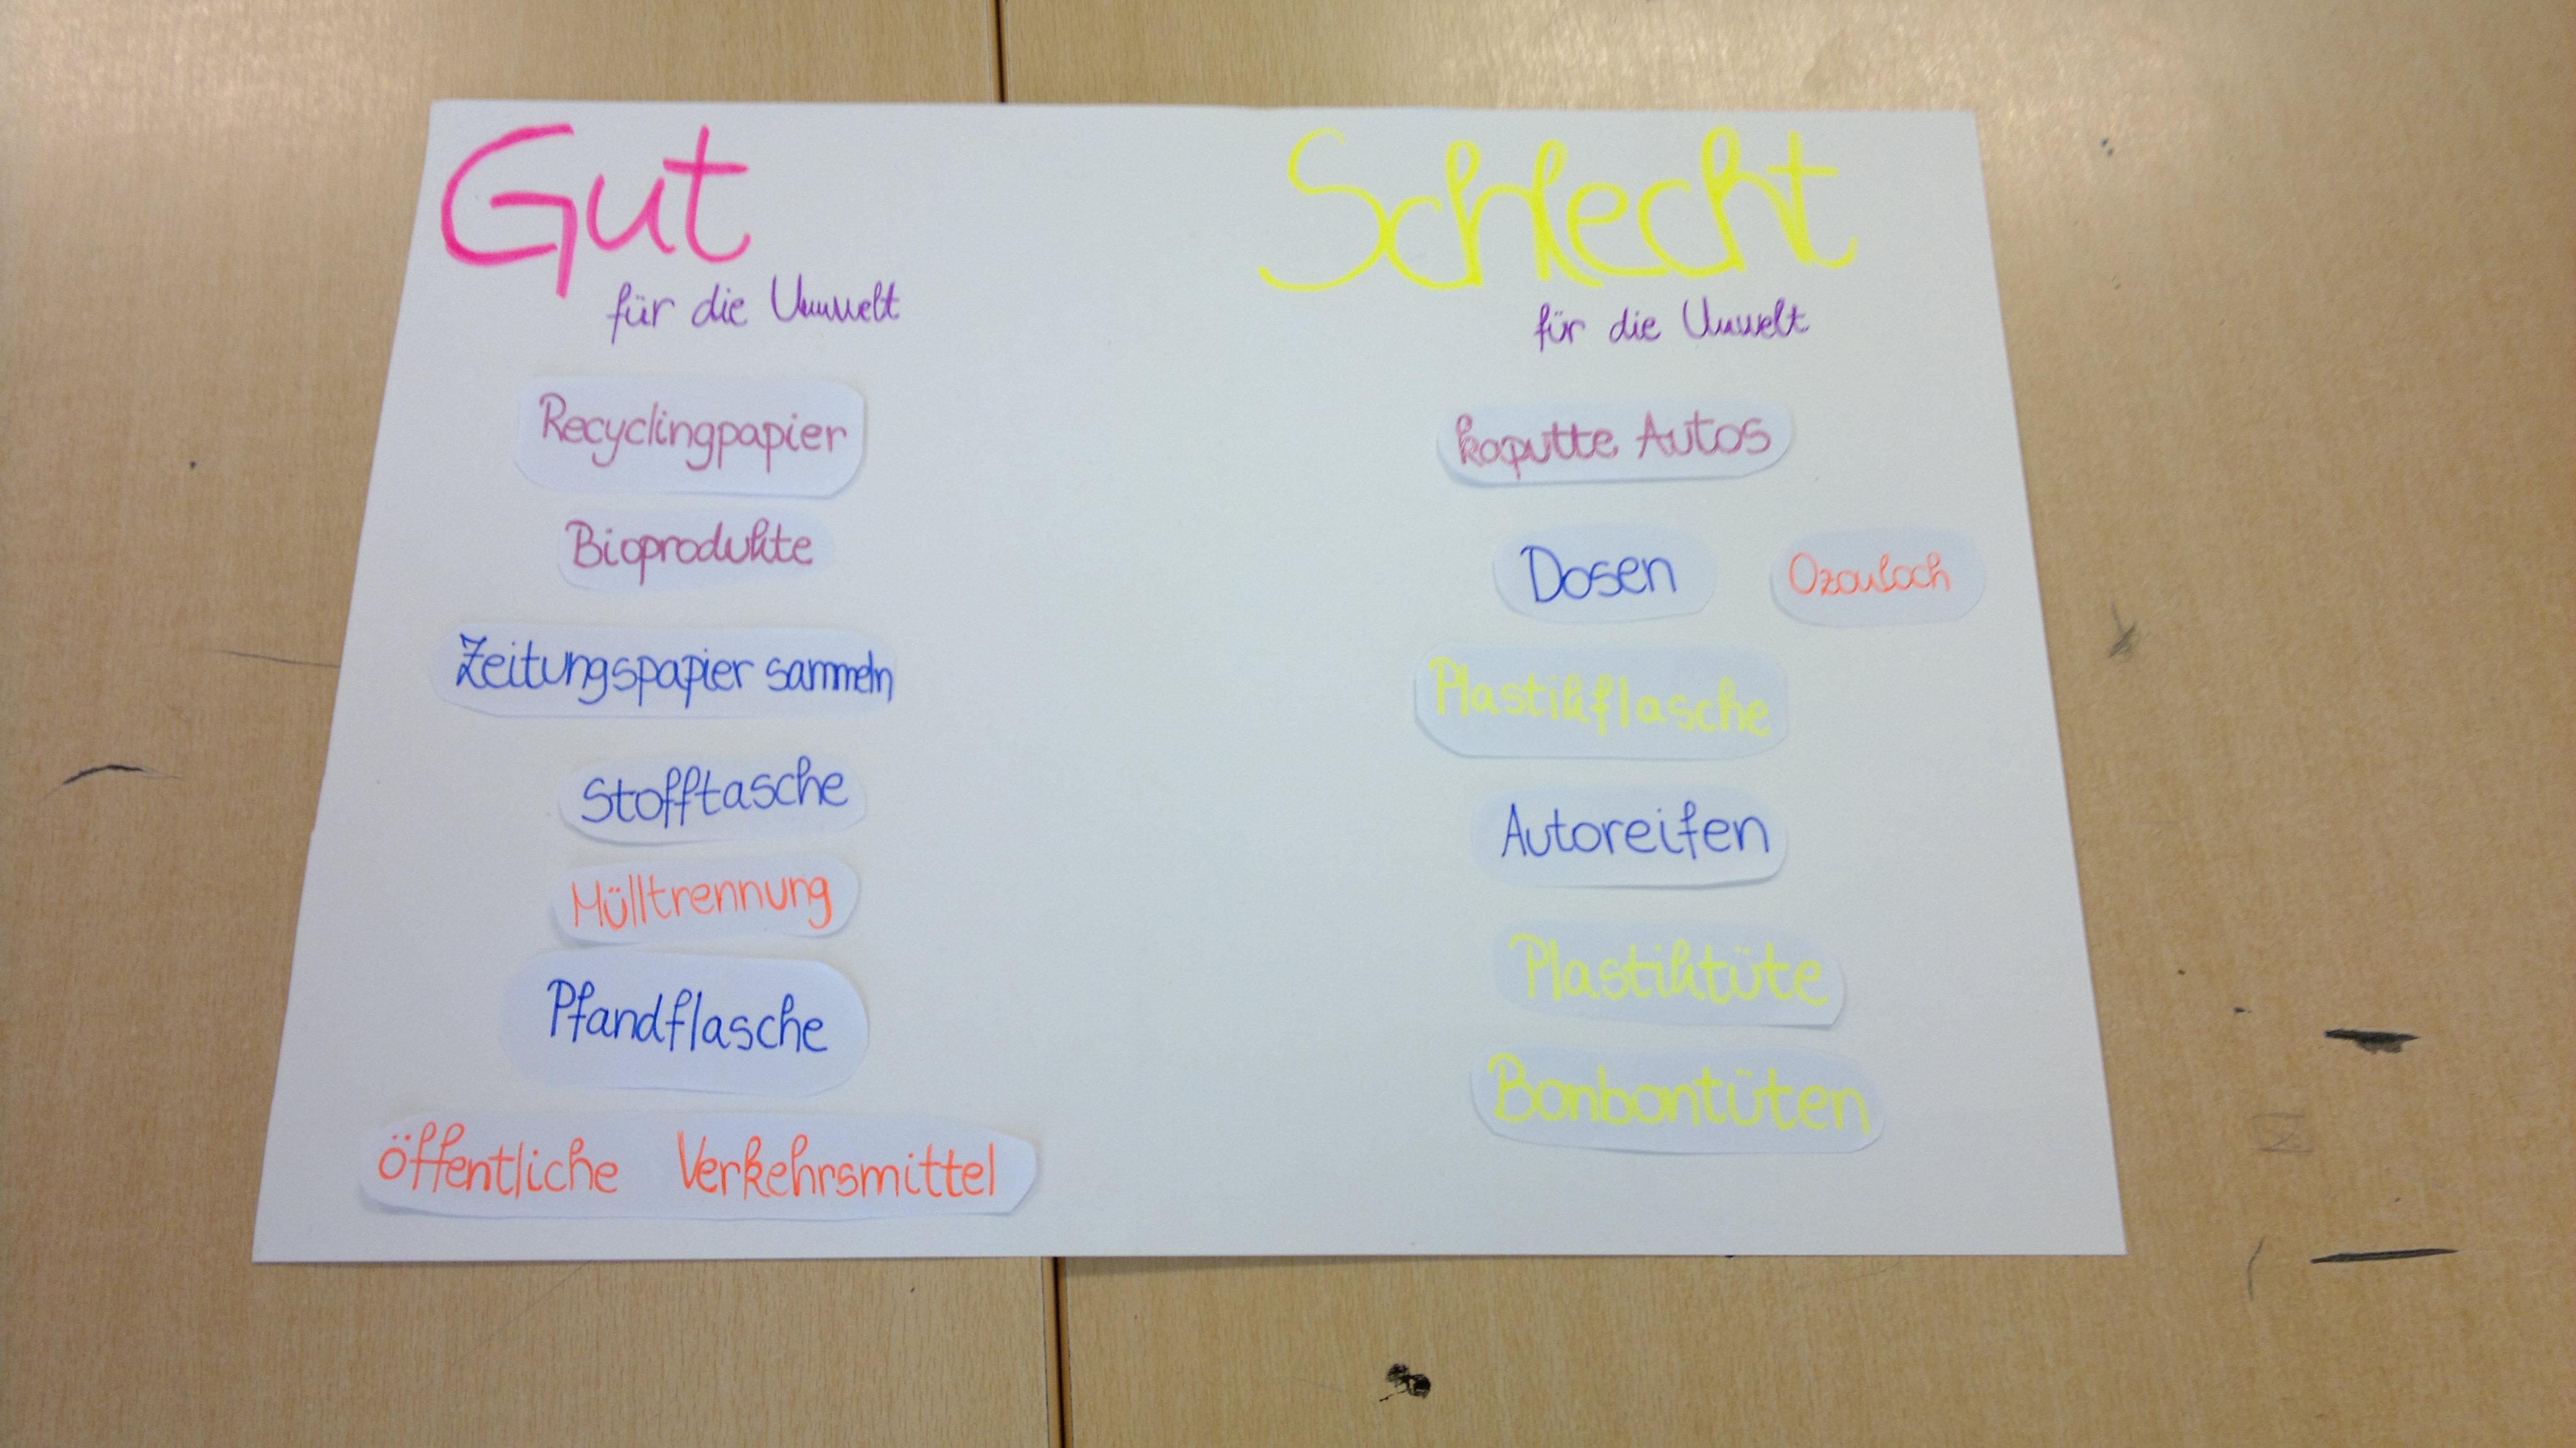 Gut
für die Umwelt
Recyclingpapier
Bioprodukte
Zeitungspapier sammeln
Stofftasche
Mülltrennung
Pfandflasche
öffentliche Verkehrsmittel
Schlecht
für die Umwelt
kaputte Autos
Dosen
Ozonloch
Plastikflasche
Autoreifen
Plastiktüte
Bonbontüten